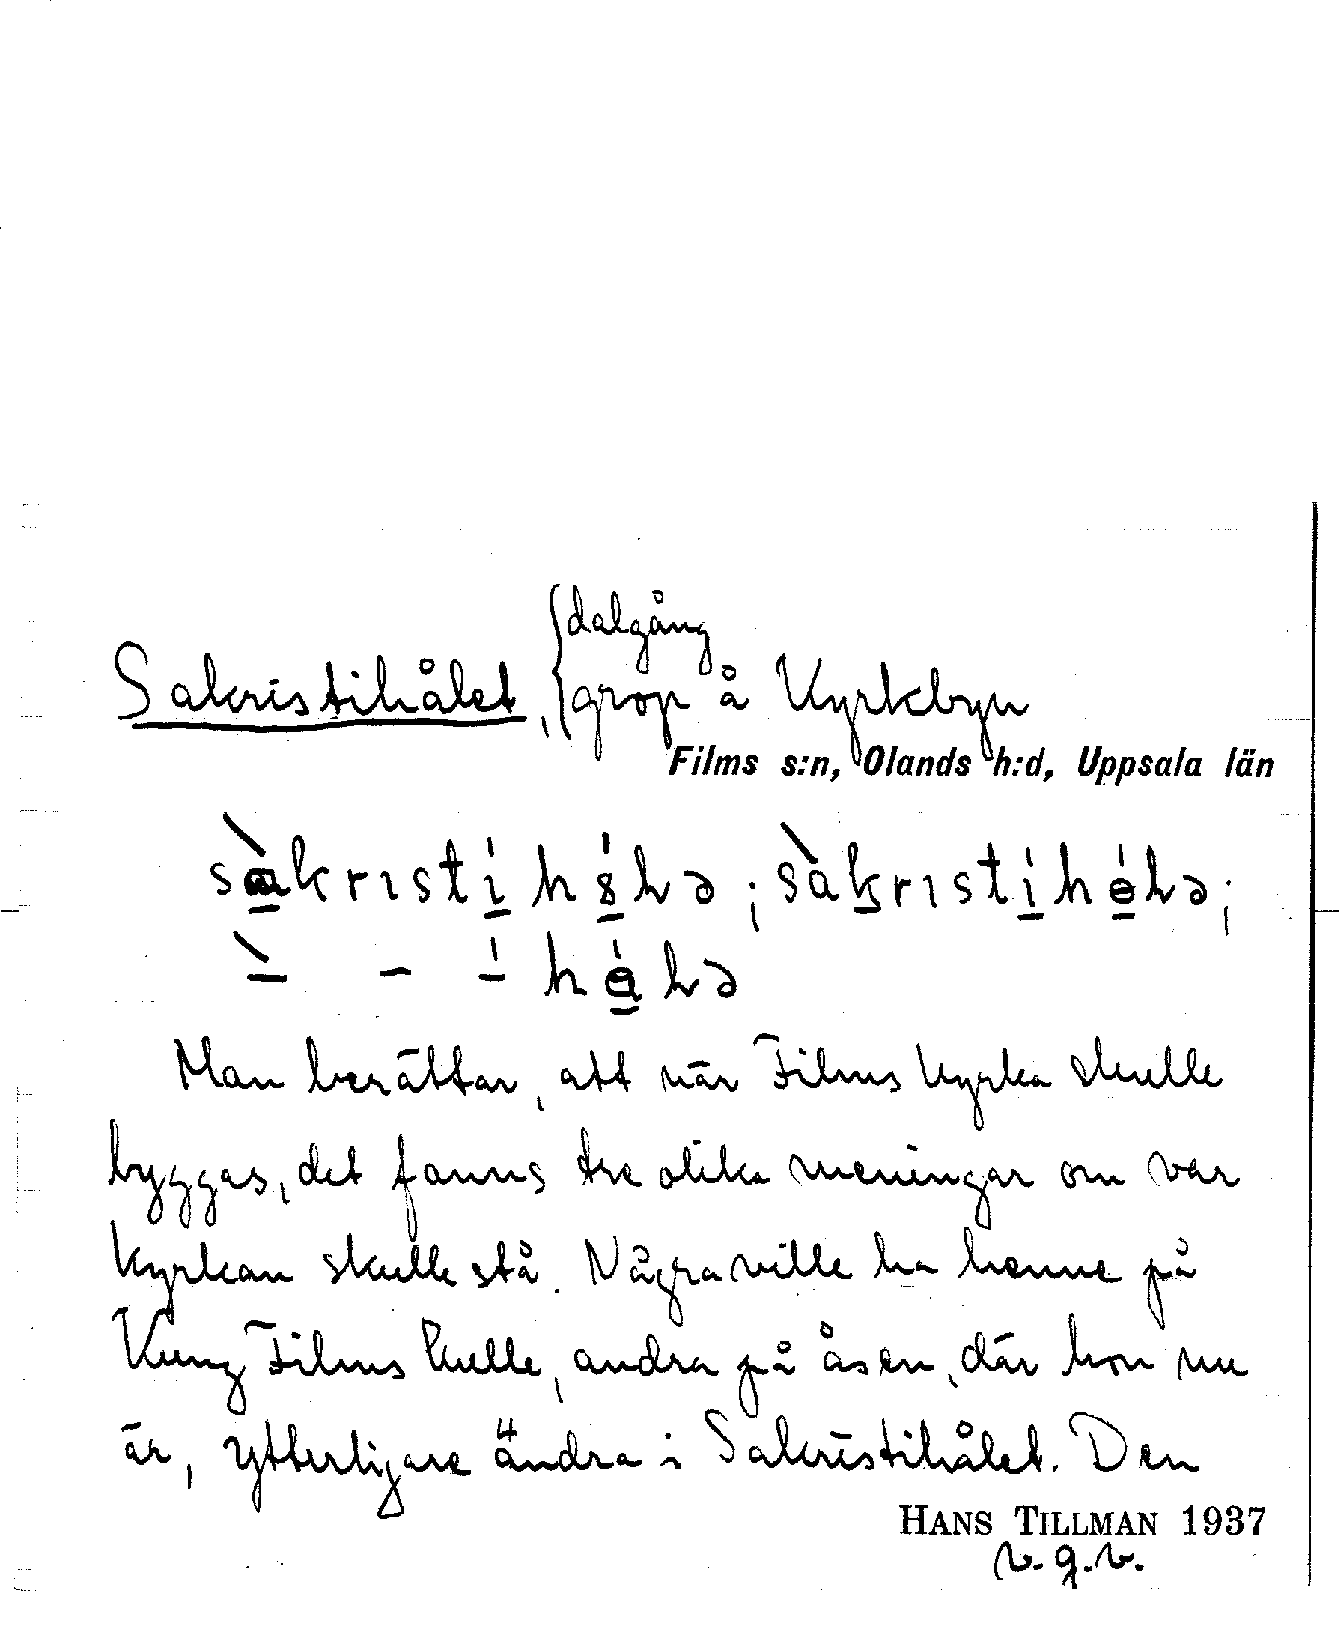 dalgång
Sakristihålet, grop å Kyrkbyn
Films s:n, Olands h:d, Uppsala län
Man berättar, att när Films kyrka skulle
byggas, det fanns tre olika meningar om var
kyrkan skulle stå. Några ville ha henne på
Kung Films kulle, andra på åsen, där hon nu
är, ytterligare andra i Sakristihålet. Den
HANS TILLMAN 1937
v.g.v.